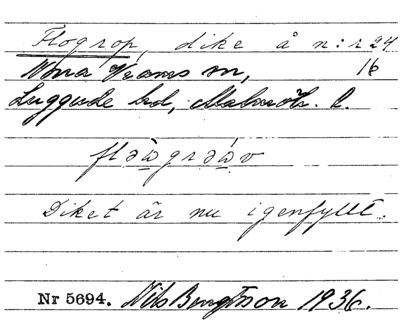 Flogrop, dike å n:r 24
Norra Vrams sn, 16
Luggude hd, Malmöh. l.
flə̀agrə́av
Diket är nu igenfyllt.
Nr 5694. Nils Bengtsson 1936.